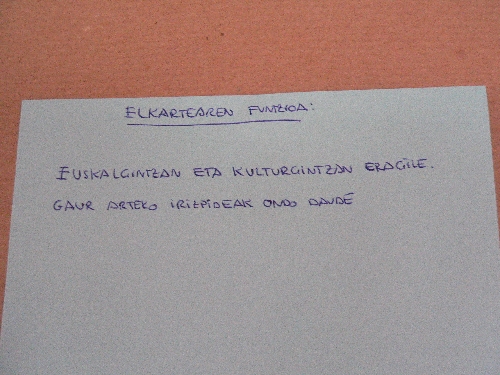 ELKARTEAREN FUNTZIOA:
EUSKALGINTZAN ETA KULTURGINTZAN ERAGILE.
GAUR ARTEKO IRIZPIDEAK ONDO DAUDE